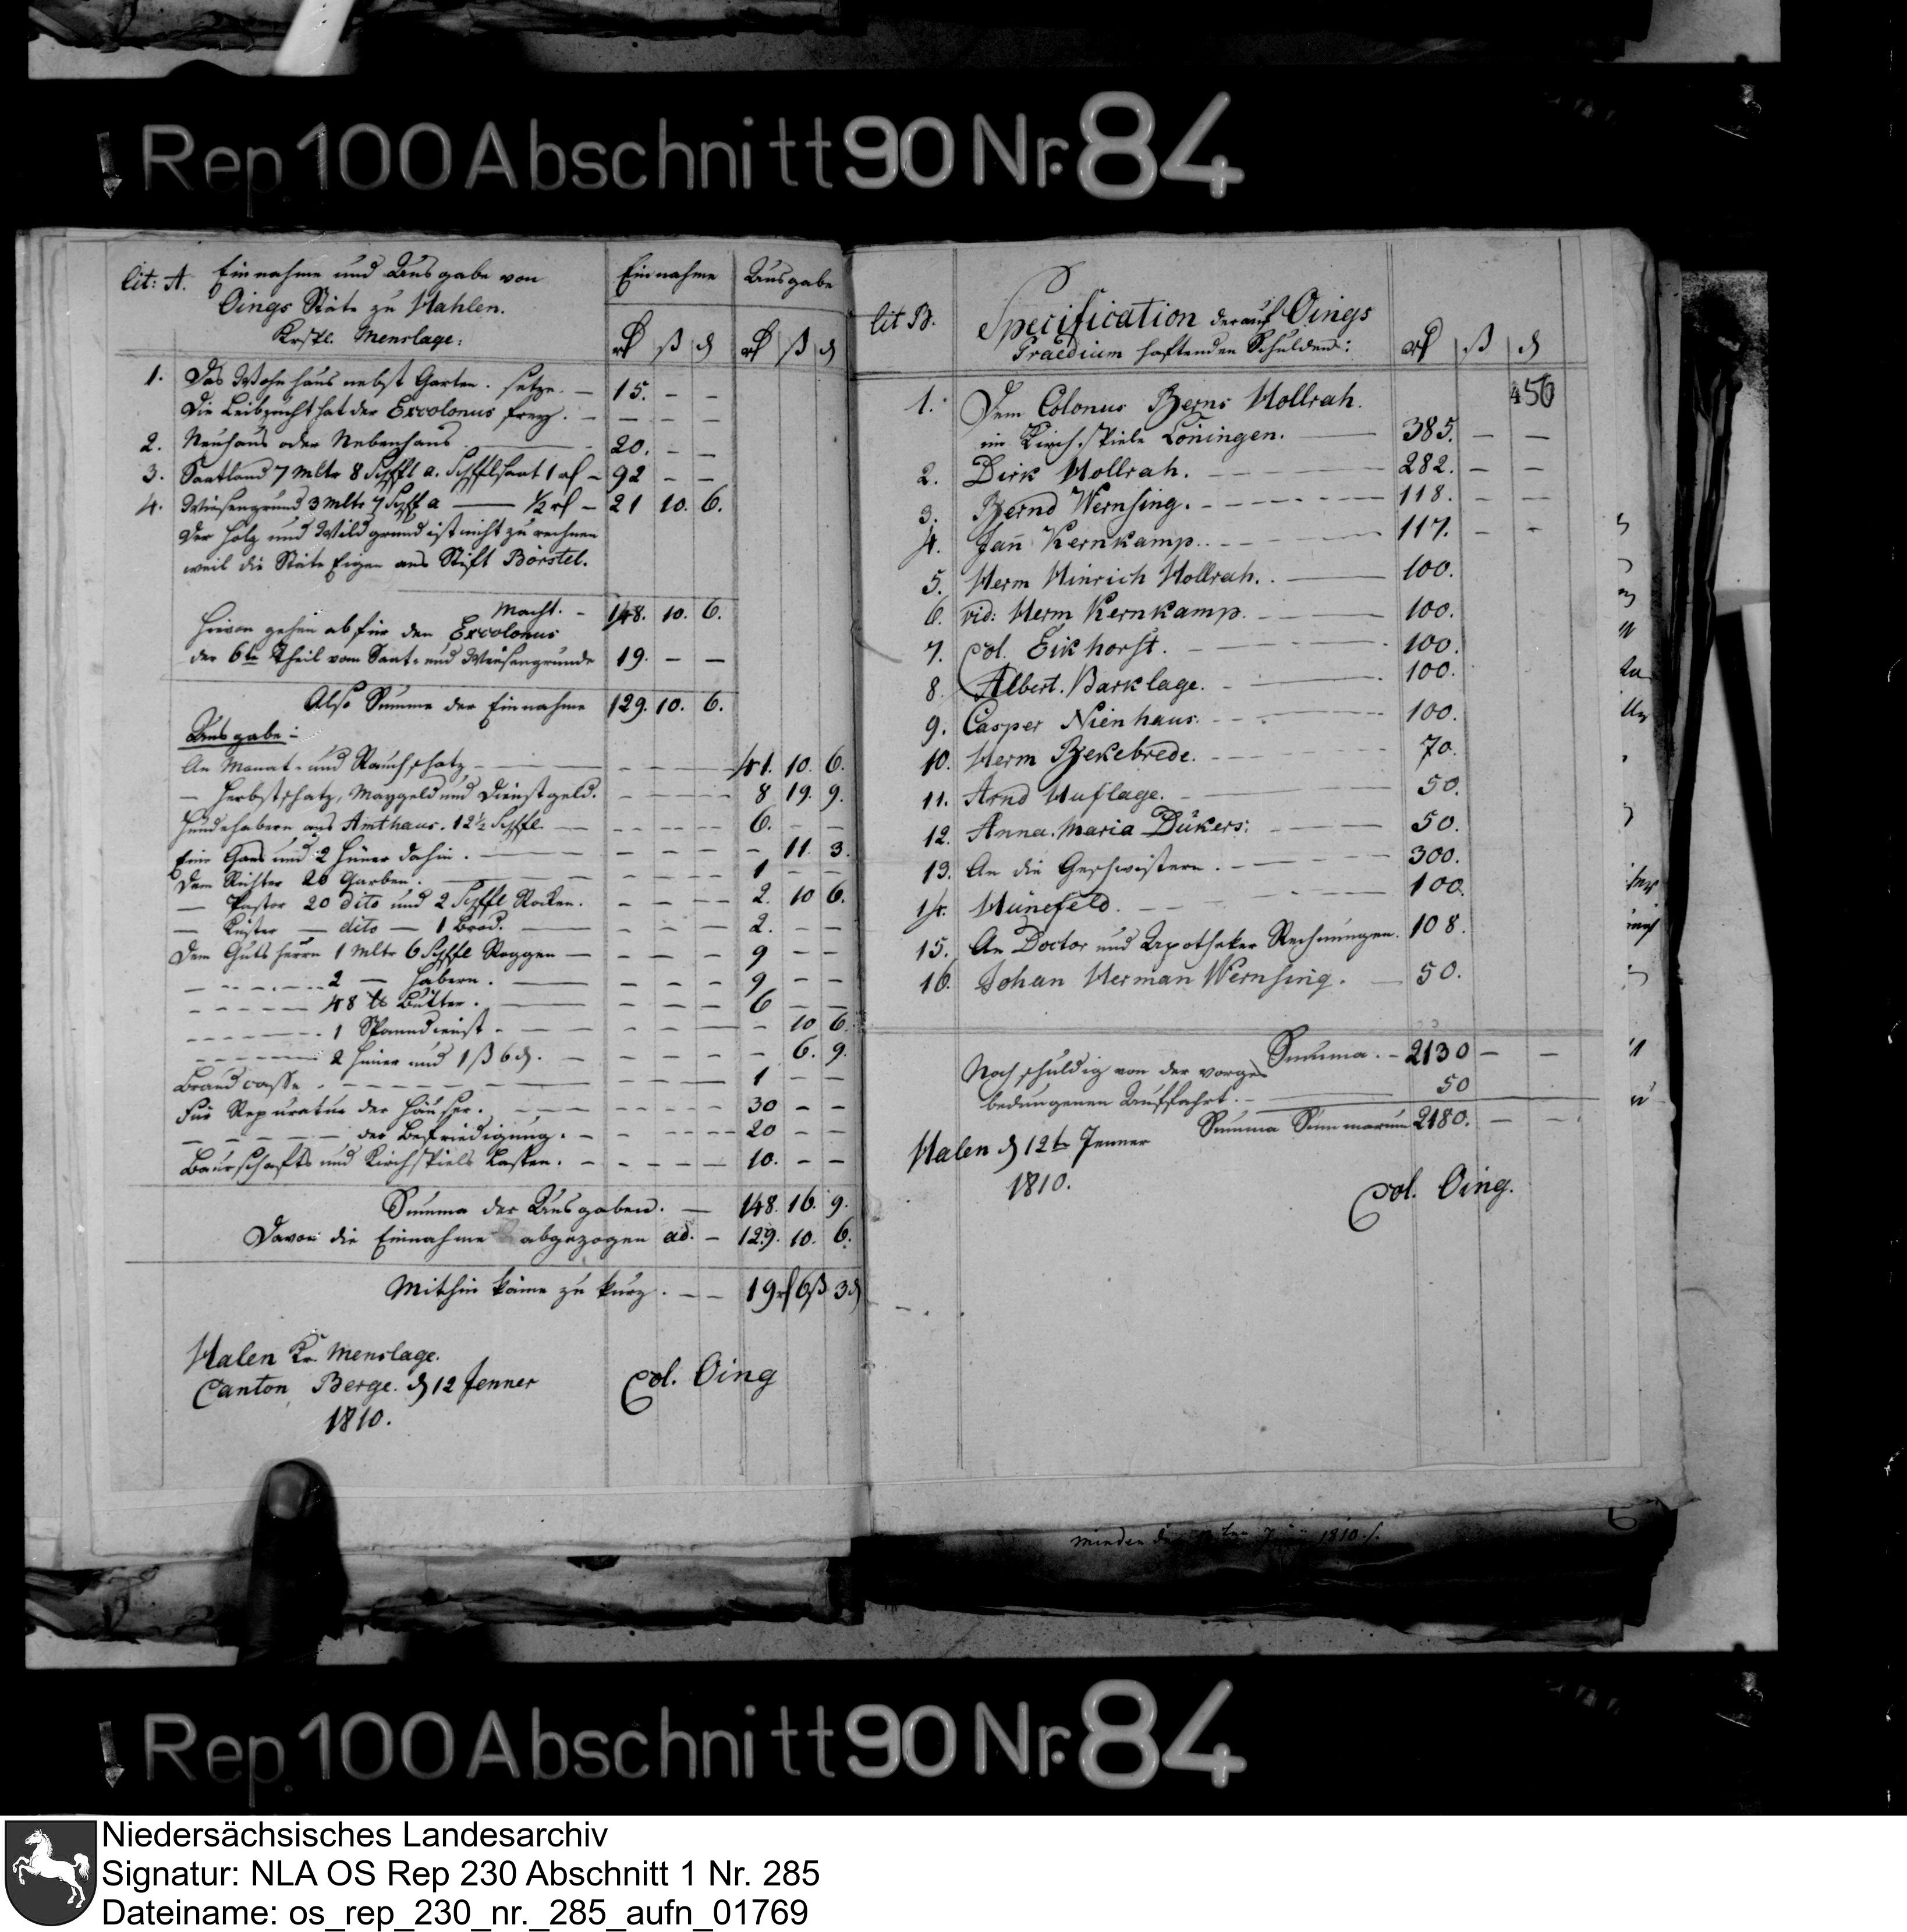 Rep 100 Abschnitt 90 Nr. 84
Lit: A. Einnahme und Ausgabe von
Oings Stäte zu Hahlen.
Krspl. Menslage:
Einnahme Ausgabe
rℓ ß ₰ rℓ ß ₰
1. Das Wohnhaus nebst Garten. setze. — 15. - -
Die Leibzucht hat der Excolonus frey. - - - -
2. Neuhaus oder Nebenhaus — 20. - -
3. Saatland 7 Mltr 8 Schffl a. Schfflsaat 1 rℓ - 92 - -
4. Wiesengrund 3 Mltr 7 Schffl a — ½ rℓ - 21 10. 6.
Der Holz und Wildgrund ist nicht zu rechnen
weil die Stäte Eigen ans Stift Börstel.
Macht. - 148. 10. 6.
Hievon gehen ab für den Excolonus
der 6te Theil vom Saat- und Wiesengrunde 19. - -
Also Summe der Einnahme 129. 10. 6.
Ausgabe:
An Monat- und Rauchschatz - 41. 10. 6.
— Herbstschatz, Maygeld und Dienstgeld. 8 19. 9.
Hundehabern ans Amthaus. 12½ Schffl. — 6. - -
Eine Gans und 2 Hüner dahin. — - 11. 3.
Dem Richter 20 Garben. — 1 - -
— Pastor 20 dito und 2 Schffl Rocken. - 2. 10 6.
— Küster — dito — 1 Brod. — 2. - -
Dem Gutsherrn 1 Mltr 6 Schffl Roggen — 9 - -
- - - - 2 — Habern. — 9 - -
- - - - 48 ℔ Butter. — 6 - -
- - - - 1 Spanndienst - — - 10 6.
- - - - 2 Hüner und 1 ß 6 ₰. - - 6. 9.
Brandcasse. - - - 1 - -
Für Repuratur der Häuser. - - - 30 - -
- - - - der Befriedigung. - - - 20 - -
Baurschafts und Kirchspiels Lasten. - - 10. - -
Summa der Ausgaben. — 148. 16. 9.
Davon die Einnahme abgezogen ad. - 129. 10. 6.
Mithin käme zu kurz. - - 19 rℓ 6 ß 3 ₰
Halen Kr. Menslage.
Canton Berge. ₰ 12 Jenner
1810.
Col. Oing
Lit B. Specification der auf Oings
Praedium haftenden Schulden: rℓ ß ₰
456
1. Dem Colonus Berns Hollrah.
im Kirchspiele Löningen. — 385. - -
2. Dirk Hollrah. — 282. - -
3. Bernd Wernsing. - - - 118. - -
4. Jan̄ Kernkamp. - - 117. - -
5. Herm Hinrich Hollrah. — 100.
6. vid: Herm Kernkamp. — 100.
7. Col. Eikhorst. - - 100.
8. Albert. Barklage. - — 100.
9. Casper Nienhaus. - - 100.
10. Herm Bekebrede. - - 70.
11. Arnd Huflage. — 50.
12. Anna. Maria Dükers. — 50.
13. An die Geschwistern. - - 300.
14. Hünefeld. - - 100.
15. An Doctor und Apotheker Rechnungen. 108.
16. Johan Herman Wernsing. — 50.
Summa. - 2130 - -
Noch schuldig von der vorge
bedungenen Auffahrt. — 50
Summa Summarum 2180. - -
Halen ₰ 12te Jenner
1810.
Col. Oing.
Minden 1810
Rep. 100 Abschnitt 90 Nr. 84
Niedersächsisches Landesarchiv
Signatur: NLA OS Rep 230 Abschnitt 1 Nr. 285
Dateiname: os_rep_230_nr._285_aufn_01769